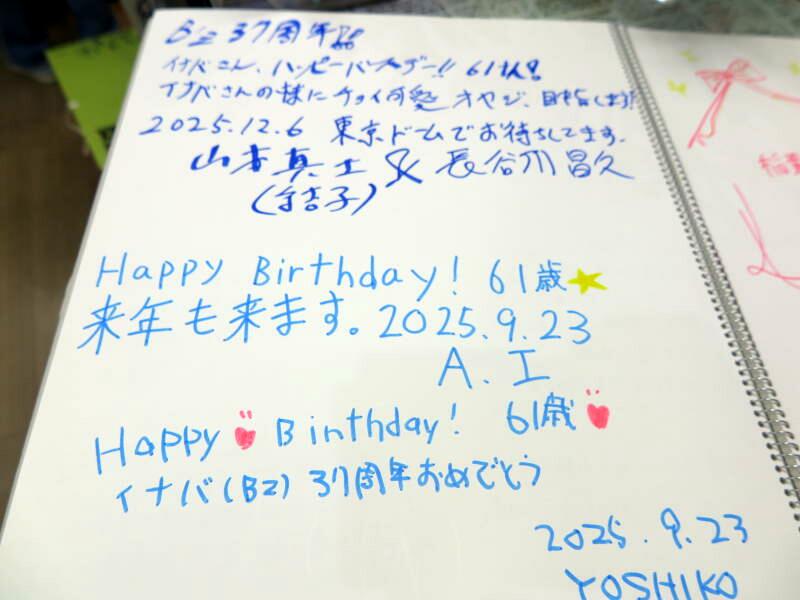 B'z 37周年
イナバさん、ハッピーバースデー!! 61才!
イナバさんの様にチョイ可愛オヤジ、目指します!
2025.12.6 東京ドームでお待ちしてます。
山本真士 & 長谷川昌久
Happy Birthday! 61歳
来年も来ます。2025.9.23
A.I
Happy Birthday! 61歳
イナバ(B'z) 37周年おめでとう
2025.9.23
YOSHIKO